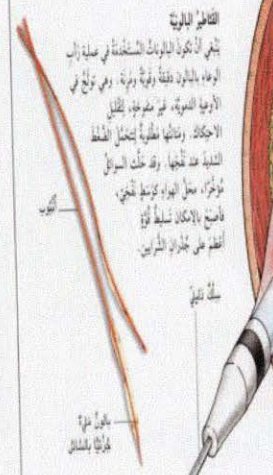 القثاطير البالونية
ينبغي أن تكون البالونات المستخدمة في عملية رأب
الوعاء بالبالون دقيقة وقوية ومرنة. وهي تولج في
الأوعية الدموية، غير منفوخة، لتقليل
الاحتكاك. ومتانتها مطلوبة لتتحمل الضغط
الشديد عند نفخها. وقد حلت السوائل
مؤخرا، محل الهواء كوسط نفخي،
فأصبح بالإمكان تسليط قوة
أعظم على جدران الشرايين.
أنبوب
سلك دليلي
بالون مليء
جزئيا بالسائل